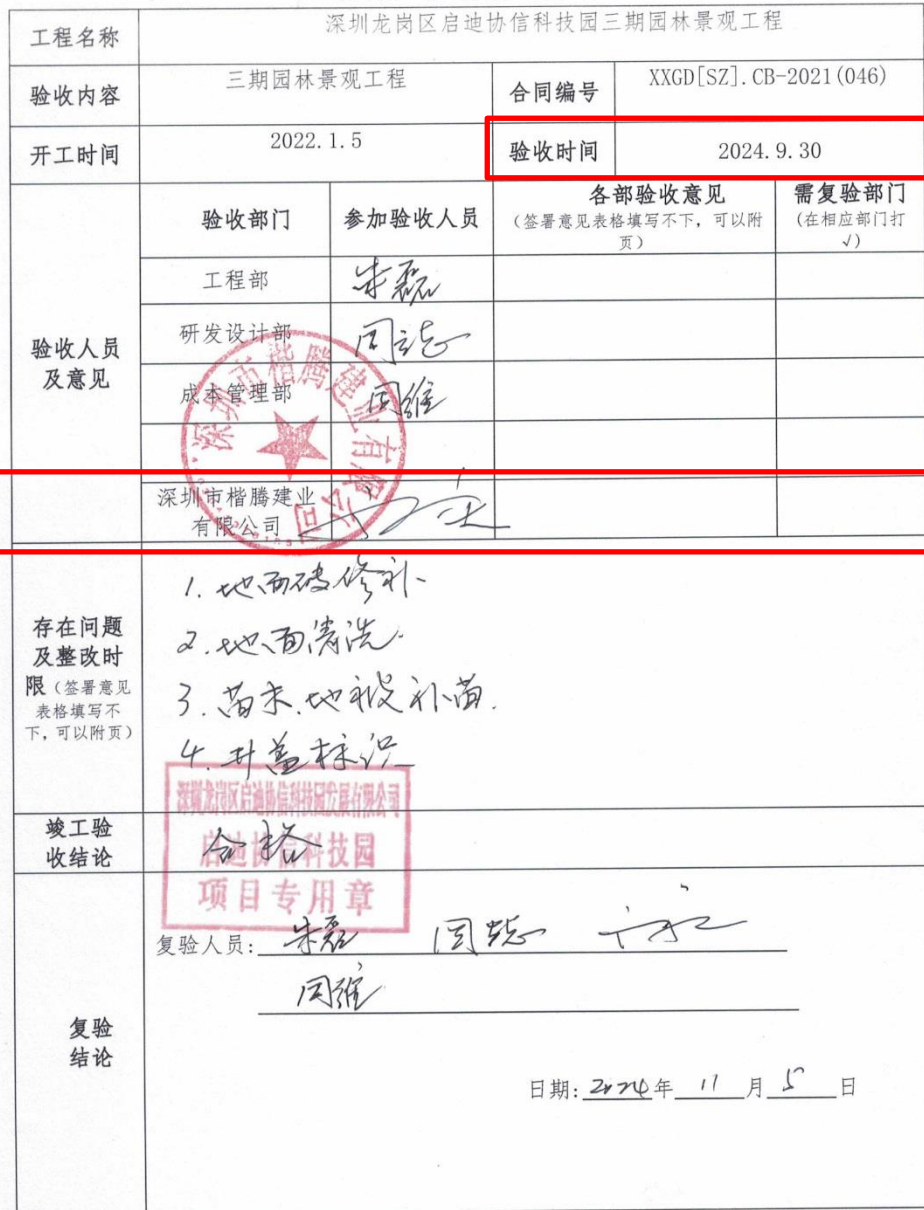 工程名称
深圳龙岗区启迪协信科技园三期园林景观工程
验收内容
三期园林景观工程
合同编号
XXGD[SZ].CB-2021(046)
开工时间
2022.1.5
验收时间
2024.9.30
验收人员
及意见
验收部门
参加验收人员
各部验收意见
(签署意见表格填写不下，可以附
页)
需复验部门
(在相应部门打
√)
工程部
朱磊
研发设计部
成本管理部
周维
深圳市楷腾建业
有限公司
深圳市楷腾建业有限公司
存在问题
及整改时
限(签署意见
表格填写不
下，可以附页)
1. 地面破修补
2. 地面清洗.
3. 苗木.地被补苗.
4. 井盖标识
深圳龙岗区启迪协信科技园发展有限公司
启迪协信科技园
项目专用章
竣工验
收结论
合格
复验
结论
复验人员: 朱磊
周维
日期: 2024年 11 月 5 日